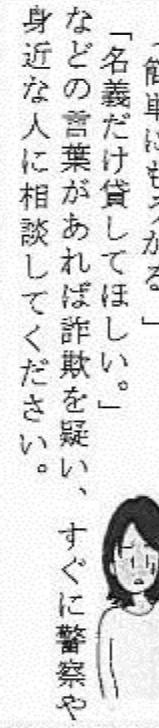 簡単にもうかる」
「名義だけ貸してほしい。」
などの言葉があれば詐欺を疑い、すぐに警察や
身近な人に相談してください。